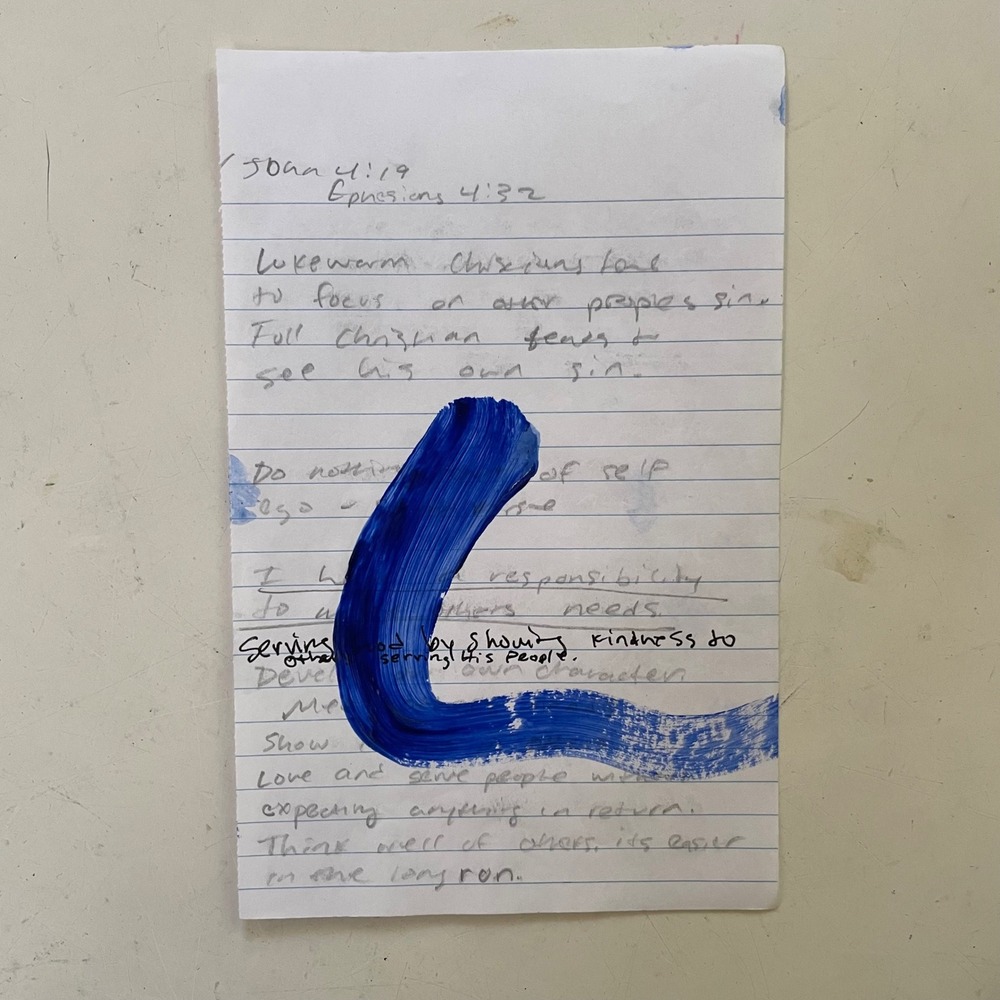 John 4:19
Ephesians 4:32
Lukewarm Christians tend
to focus on other peoples sin.
Full Christian tends to
see his own sin.
Do of self
ego -
I responsibility
to others needs.
Serving by showing kindness to
serving His People.
own character.
Show
Love and serve people without
expecting anything in return.
Think well of others, its easier
in the long run.